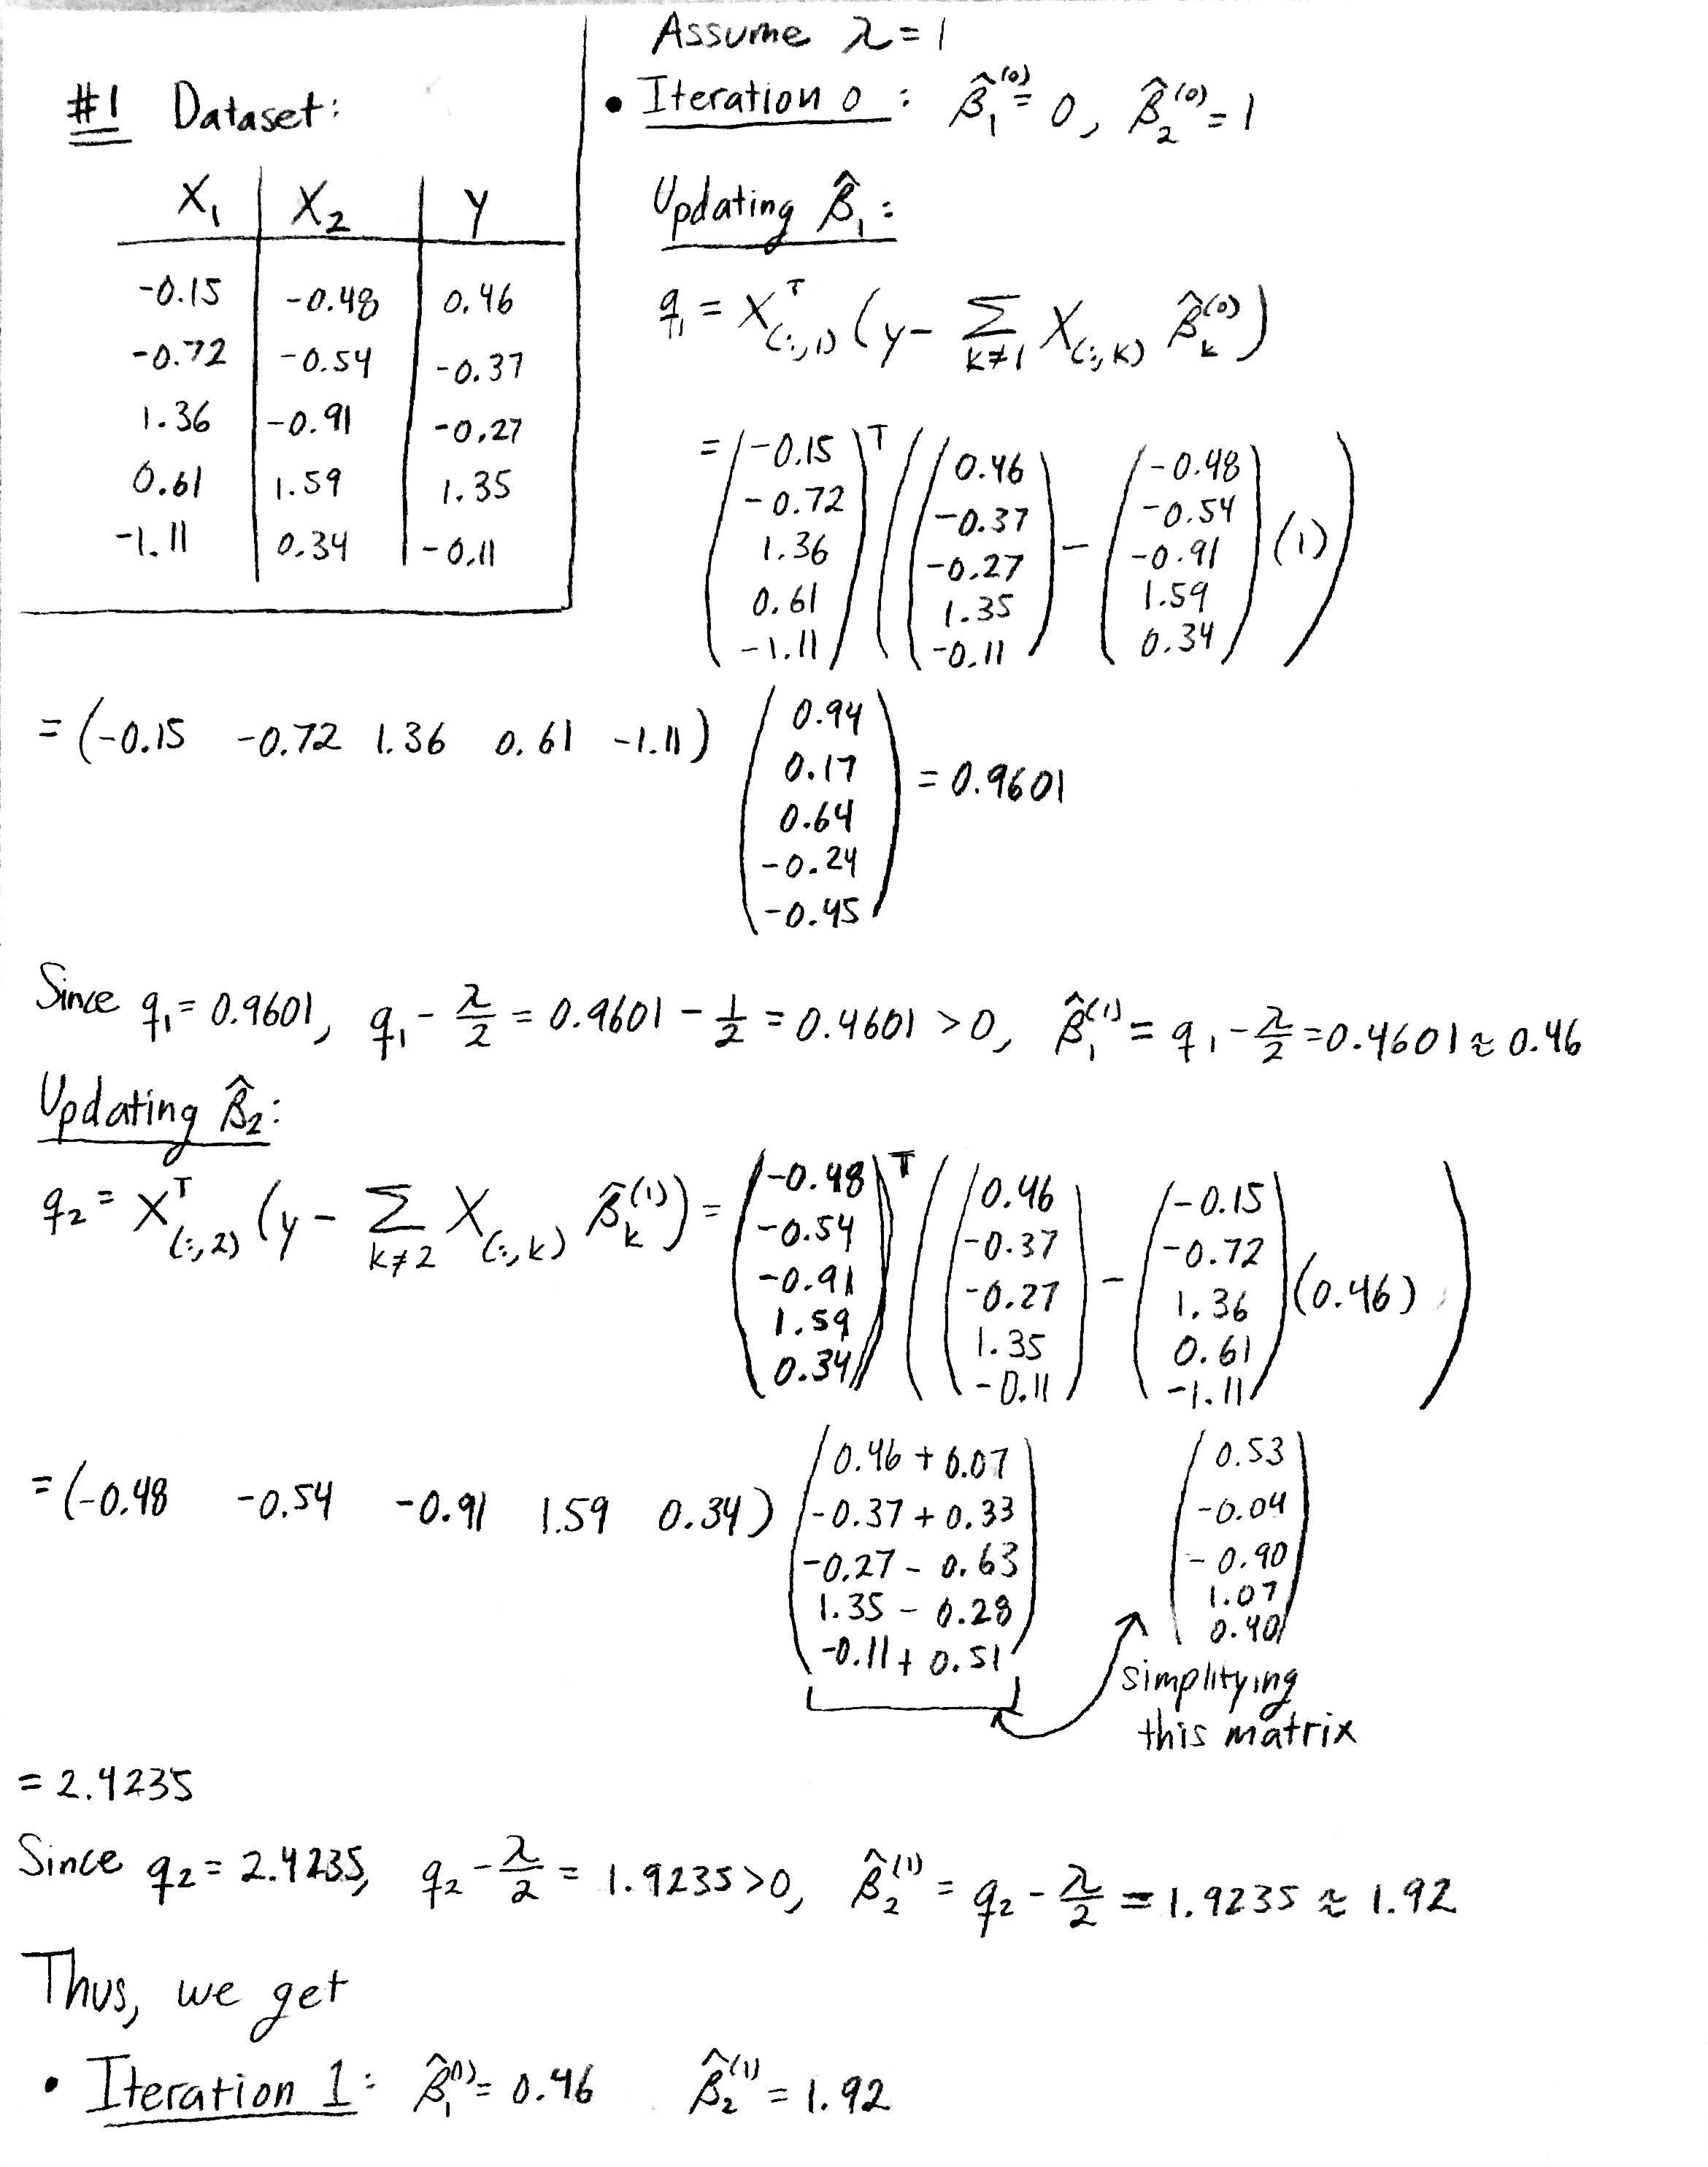 #1 Dataset:
X₁ | X₂ | Y
-0.15 | -0.48 | 0.46
-0.72 | -0.54 | -0.37
1.36 | -0.91 | -0.27
0.61 | 1.59 | 1.35
-1.11 | 0.34 | -0.11
Assume λ = 1
• Iteration 0 : β̂₁⁽⁰⁾ = 0, β̂₂⁽⁰⁾ = 1
Updating β̂₁:
q₁ = Xᵀ(:,1) (y - Σ_{k≠1} X(:,k) β̂ₖ⁽⁰⁾)
= (-0.15 -0.72 1.36 0.61 -1.11)ᵀ ((0.46 -0.37 -0.27 1.35 -0.11) - (-0.48 -0.54 -0.91 1.59 0.34) (1))
= (-0.15 -0.72 1.36 0.61 -1.11) (0.94 0.17 0.64 -0.24 -0.45) = 0.9601
Since q₁ = 0.9601, q₁ - λ/2 = 0.9601 - 1/2 = 0.4601 > 0, β̂₁⁽¹⁾ = q₁ - λ/2 = 0.4601 ≈ 0.46
Updating β̂₂:
q₂ = Xᵀ(:,2) (y - Σ_{k≠2} X(:,k) β̂ₖ⁽¹⁾) = (-0.48 -0.54 -0.91 1.59 0.34)ᵀ ((0.46 -0.37 -0.27 1.35 -0.11) - (-0.15 -0.72 1.36 0.61 -1.11) (0.46))
= (-0.48 -0.54 -0.91 1.59 0.34) (0.46 + 0.07 -0.37 + 0.33 -0.27 - 0.63 1.35 - 0.28 -0.11 + 0.51) (0.53 -0.04 -0.90 1.07 0.40)
simplifying
this matrix
= 2.4235
Since q₂ = 2.4235, q₂ - λ/2 = 1.9235 > 0, β̂₂⁽¹⁾ = q₂ - λ/2 = 1.9235 ≈ 1.92
Thus, we get
• Iteration 1: β̂₁⁽¹⁾ = 0.46 β̂₂⁽¹⁾ = 1.92